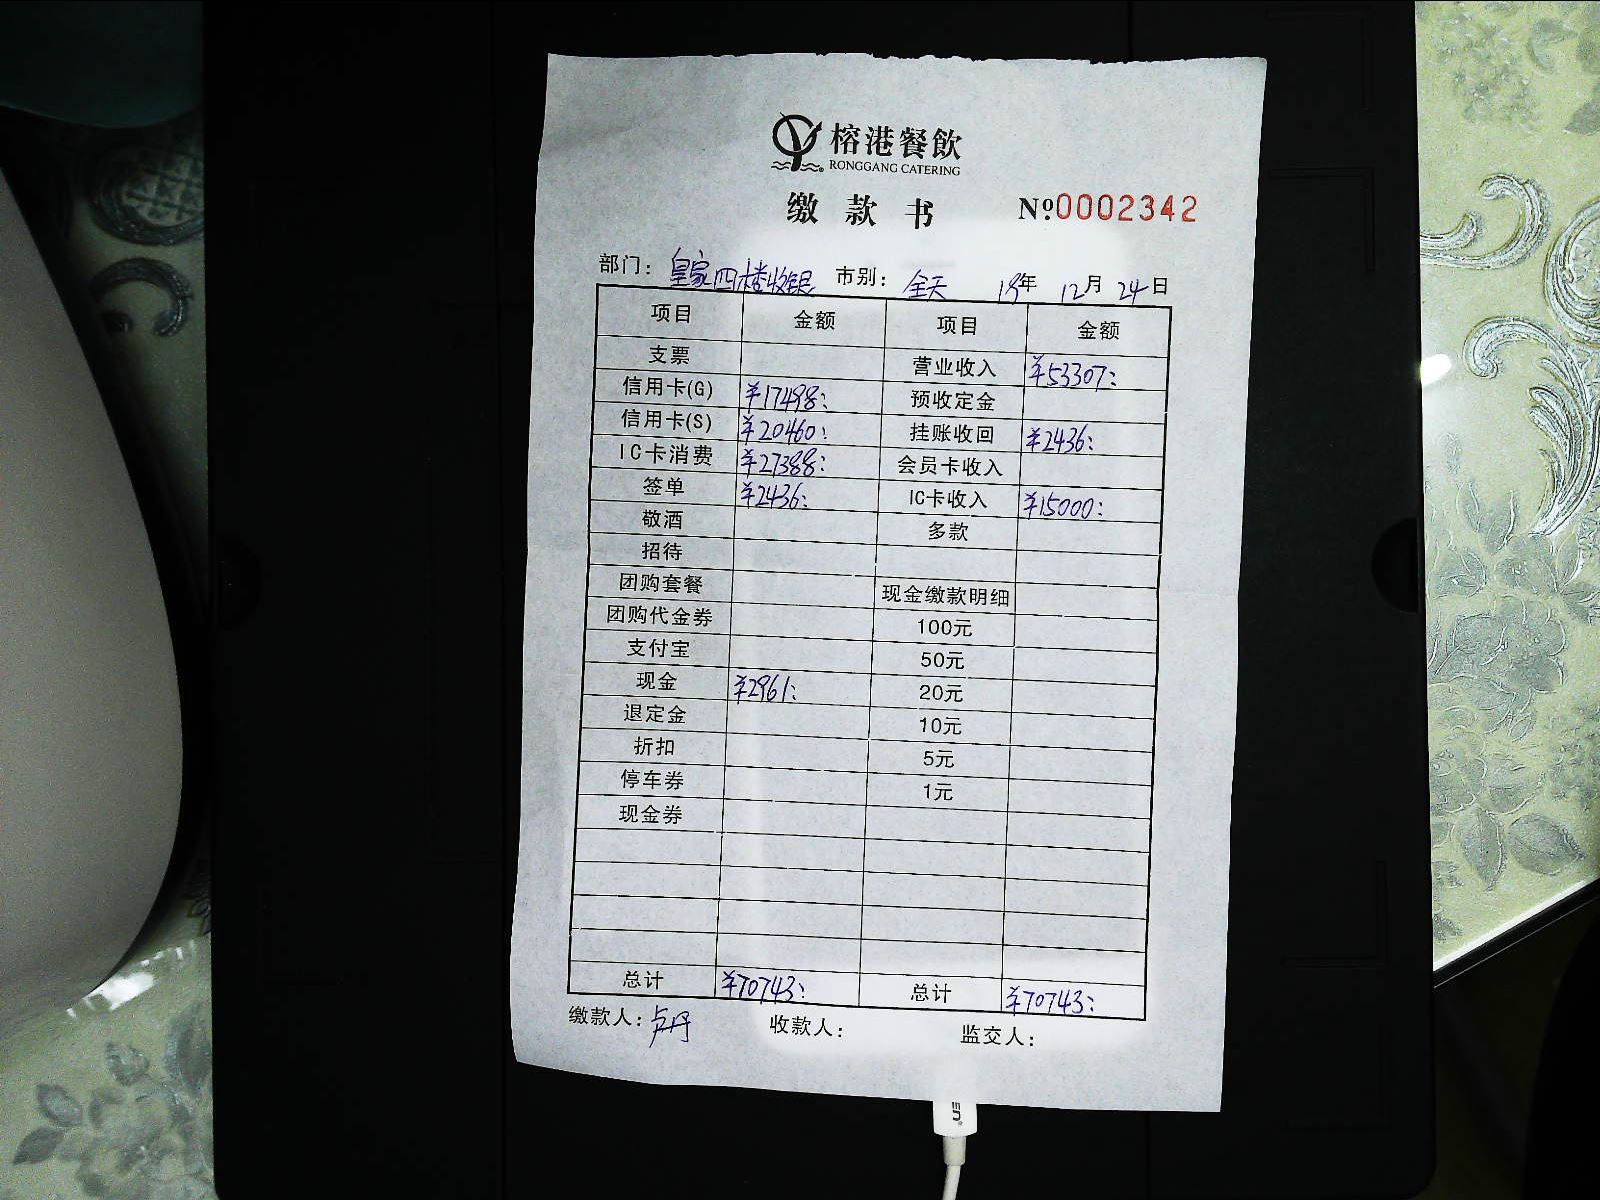 榕港餐飲
RONGGANG CATERING
缴款书 №0002342
部门：皇家四楼收银 市别：全天 19年 12月 24日
项目 金额 项目 金额
支票 营业收入 ¥53307:
信用卡(G) ¥17498: 预收定金
信用卡(S) ¥20460: 挂账收回 ¥2436:
IC卡消费 ¥27388: 会员卡收入
签单 ¥2436: IC卡收入 ¥15000:
敬酒 多款
招待
团购套餐 现金缴款明细
团购代金券 100元
支付宝 50元
现金 ¥2961: 20元
退定金 10元
折扣 5元
停车券 1元
现金券
总计 ¥70743: 总计 ¥70743:
缴款人：卢丹 收款人： 监交人：